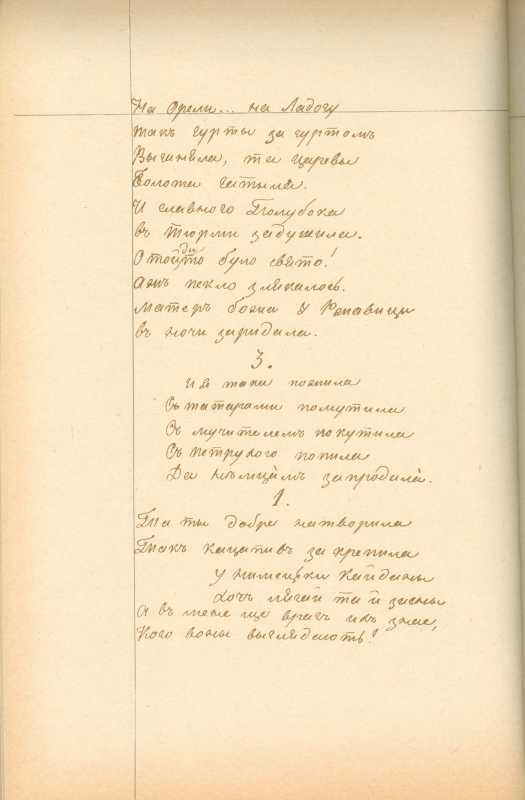 На Орели... на Ладогу
такъ гурты за гуртомъ
Выганяла, та цареви
Болота гатыла.
И славного Полубока
въ тюрми задушила.
Отойди то було свято!
Ажъ пекло злякалось.
Матерь божа у Ржавици
въ ночи заридала.
3.
И я таки пожила
Съ татарами помутила
Съ мучителемъ покутила
Съ петрухою попила
Да нѣмцямъ запродала.
1.
Та ты добре натворила
Такъ кацапивъ закрепила
У нимецьки кайданы
Хочъ лягай та й засны
А въ мене ще врагъ ихъ знае,
Кого воны выглядають!